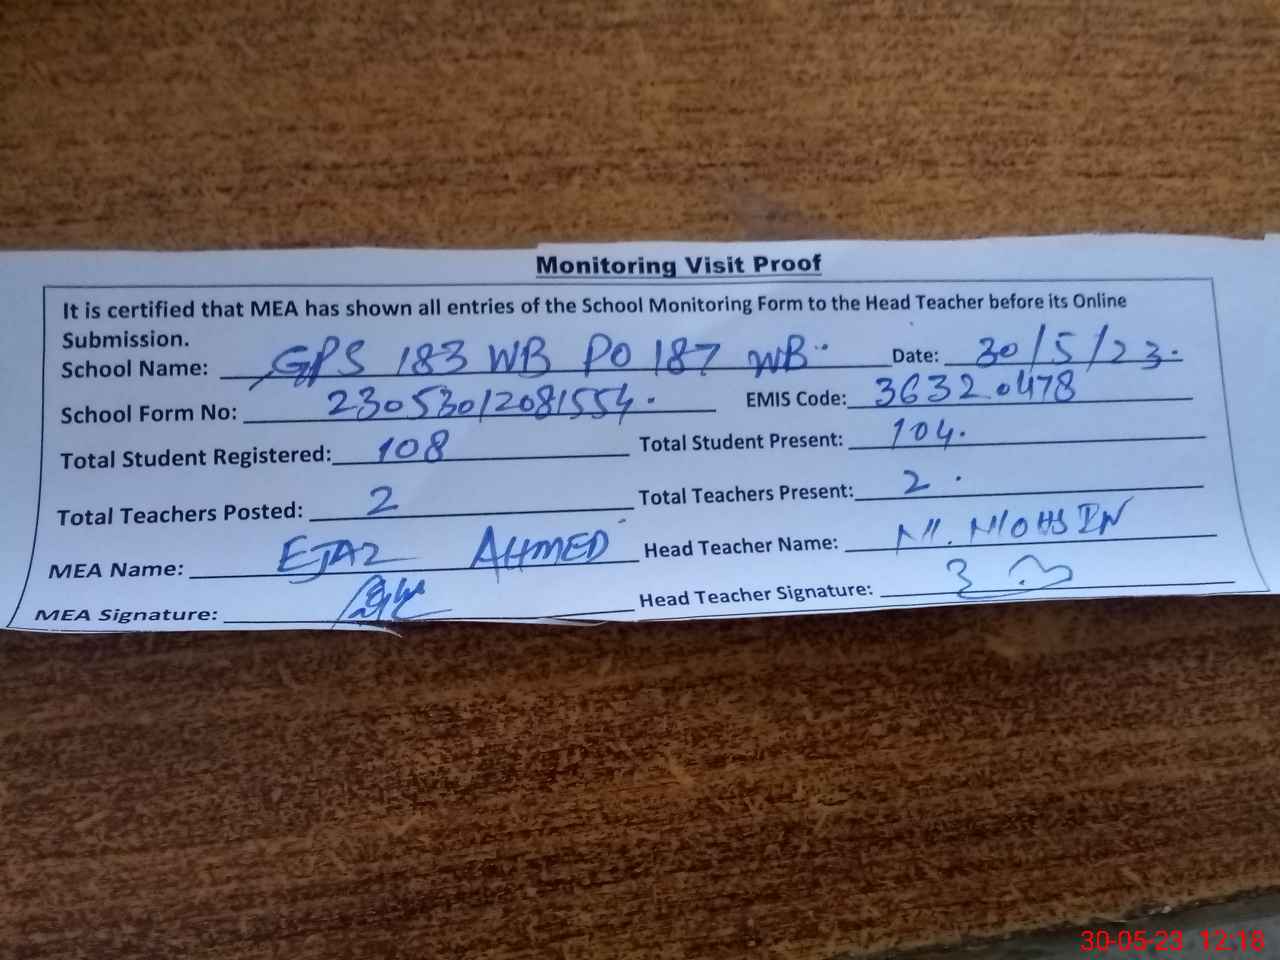 Monitoring Visit Proof
It is certified that MEA has shown all entries of the School Monitoring Form to the Head Teacher before its Online
Submission.
School Name: GPS 183 WB PO 187 WB Date: 30/5/23.
School Form No: 23053012081554. EMIS Code: 36320478
Total Student Registered: 108 Total Student Present: 104.
Total Teachers Posted: 2 Total Teachers Present: 2.
MEA Name: EJAZ AHMED Head Teacher Name: M. MOHSIN
MEA Signature: Head Teacher Signature:
30-05-23 12:18